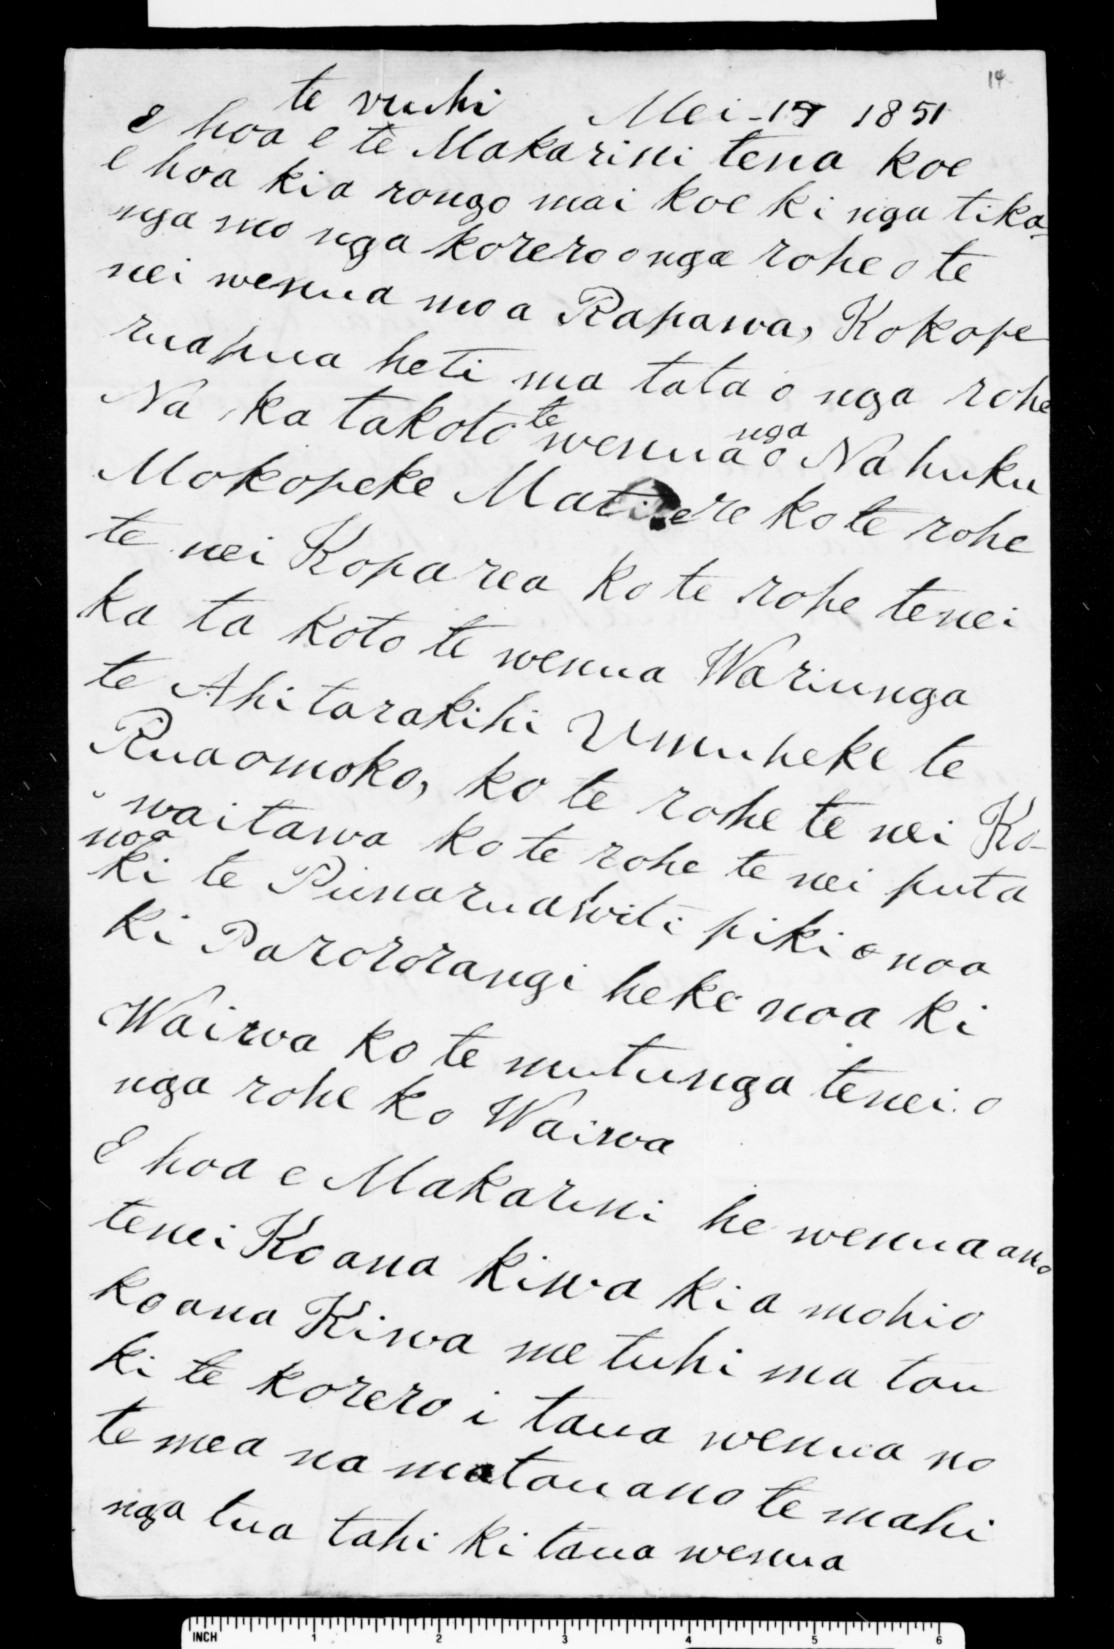 14
te ruhi Mei 17 1851
E hoa e te Makarini tena koe
e hoa kia rongo mai koe ki nga tika-
nga mo nga korero o nga rohe o te
nei wenua mo a Rapawa, Kokope
ruapua heti ma tata o nga rohe
Na ka takoto te wenua nga o Nahuku
Mokopeke Mat ere ko te rohe
te nei Koparea ko te rohe tenei
ka ta koto te wenua Wariunga
te Ahitarakihi Umuheke te
Ruaomoko, ko te rohe te nei Ko-
waitawa ko te rohe te nei puta
noa
ki te Punaruawiti piki noa
ki Parororangi heke noa ki
Wairoa ko te mutunga tenei o
nga rohe ko Wairoa
E hoa e Makarini he wenua ano
tenei Ko ana kiwa kia mohio
ko ana Kiwa me tuhi ma tou
ki te korero i taua wenua no
te mea na matou ano te mahi
nga tua tahi ki taua wenua
INCH 1 2 3 4 5 6